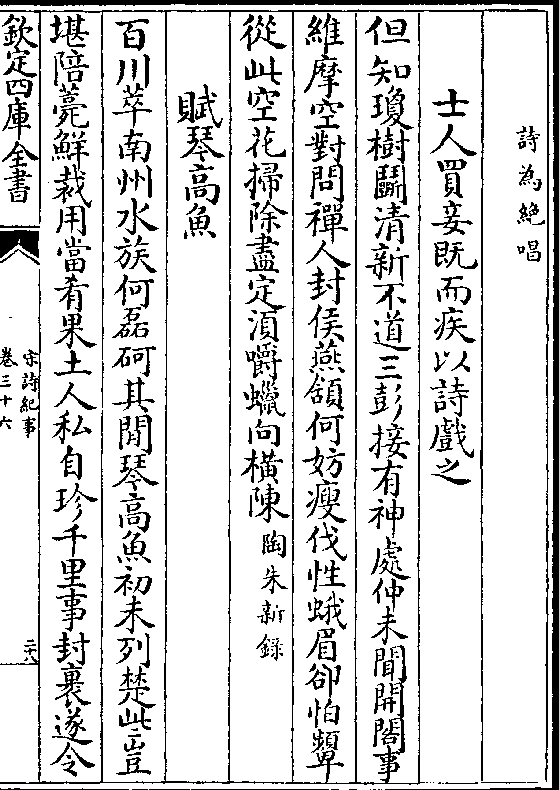 詩為絕唱
士人買妾既而疾以詩戲之
但知瓊樹鬬清新不道三彭接有神處仲未聞開閤事
維摩空對問禪人封侯燕頷何妨瘦伐性蛾眉卻怕顰
從此空花掃除盡定湏嚼蠟向橫陳 陶朱新錄
賦琴高魚
百川萃南州水族何磊砢其閒琴高魚初未列楚些豈
堪陪薧鮮裁用當肴果土人私自珍千里事封裹遂令
欽定四庫全書
宋詩紀事
卷三十六